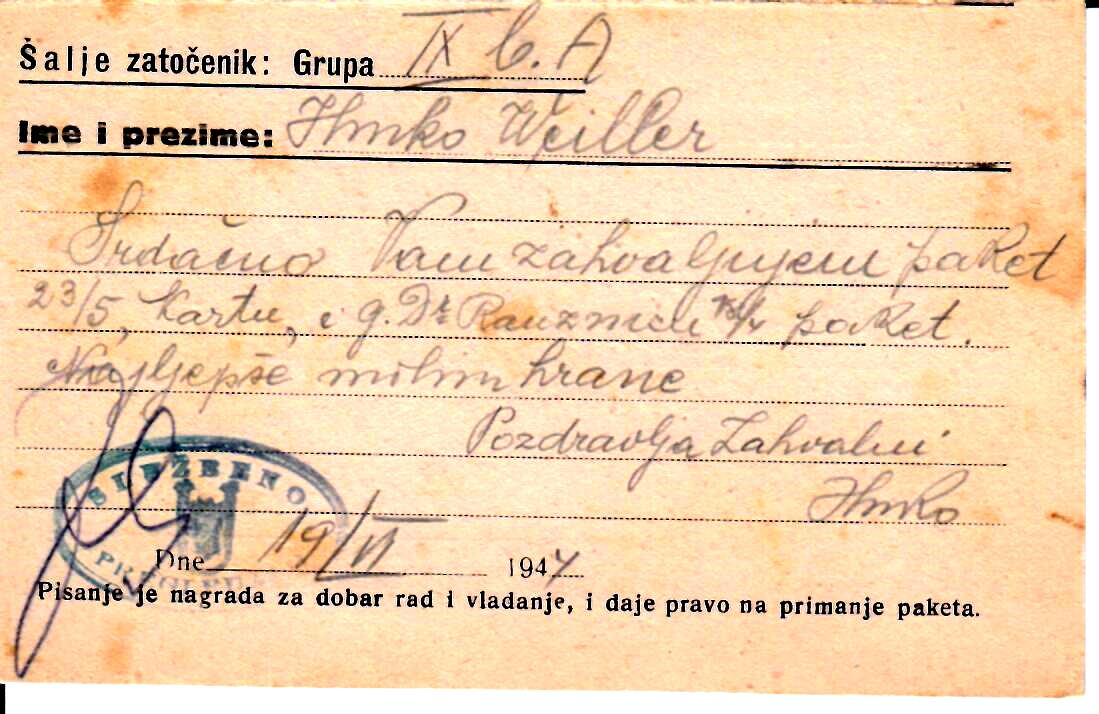 Šalje zatočenik: Grupa IX C. A
Ime i prezime: Hinko Weiller
Srdačno Vam zahvaljujem paket
23/5, Kartu, i g. Dr paket.
Najljepše hrane
Pozdravlja Zahvalni
Hinko
SLUŽBENO
PREGLEDANO
Dne 19/VI 1944
Pisanje je nagrada za dobar rad i vladanje, i daje pravo na primanje paketa.